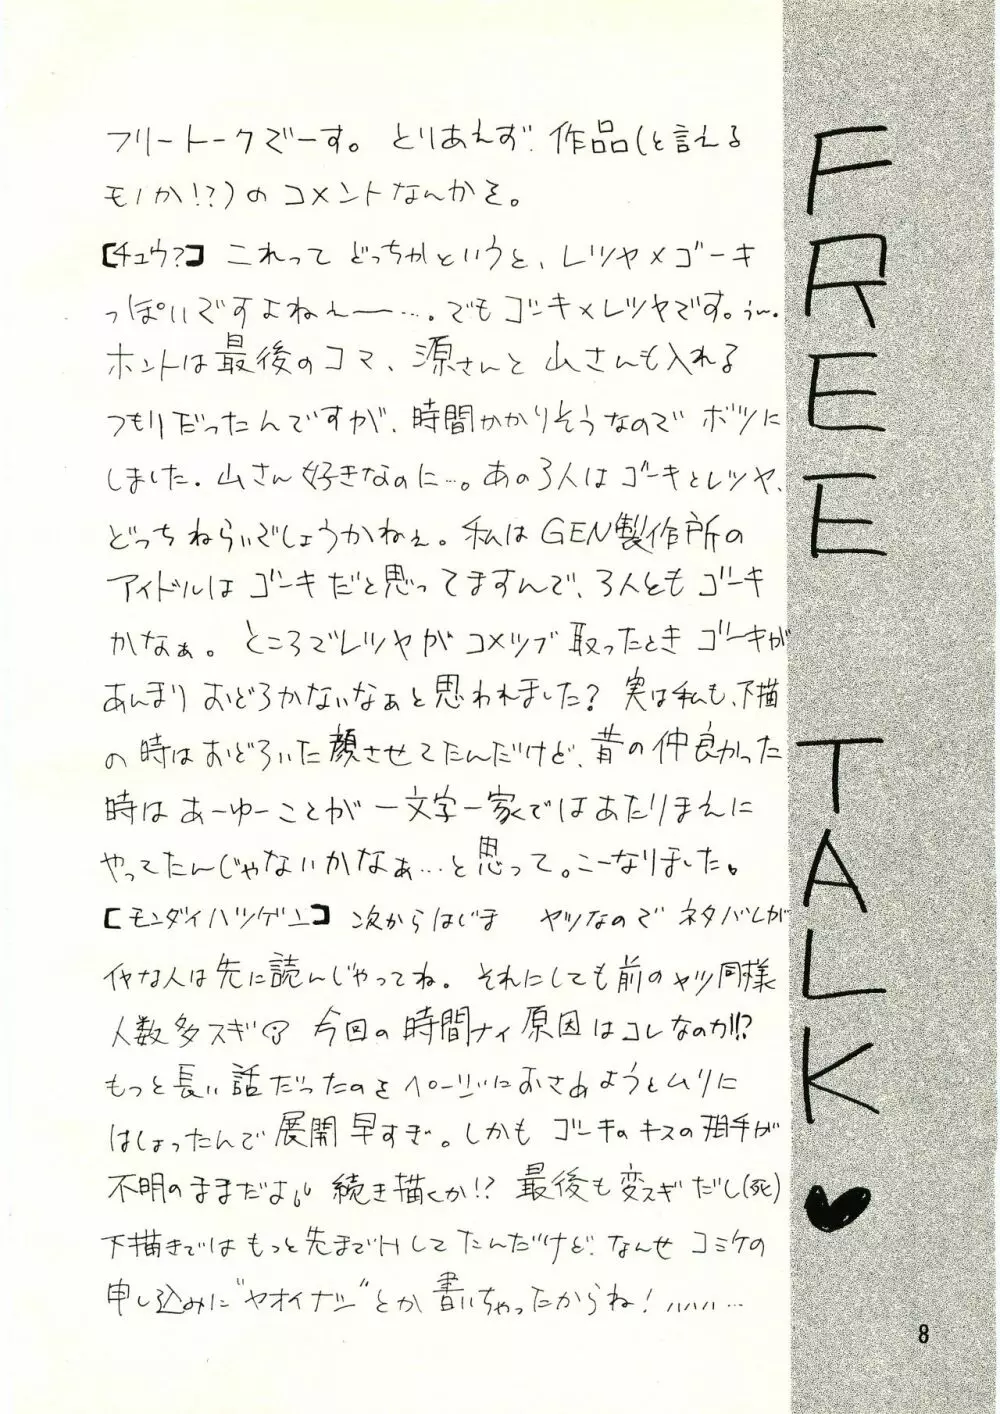 フリートークでーす。とりあえず、作品(と言える
モノか!?)のコメントなんかを。
【チュウ?】これってどっちかというと、レツヤ×ゴーキ
っぽいですよねぇー…。でもゴーキ×レツヤです。うー。
ホントは最後のコマ、源さんと山さんも入れる
つもりだったんですが、時間かかりそうなのでボツに
しました。山さん好きなのに…。あの3人はゴーキとレツヤ、
どっちねらいでしょうかねぇ。私はGEN製作所の
アイドルはゴーキだと思ってますんで、3人ともゴーキ
かなぁ。ところでレツヤがコメツブ取ったときゴーキが
あんまりおどろかないなぁと思われました?実は私も、下描
の時はおどろいた顔させてたんだけど、昔の仲良かった
時はあーゆーことが一文字一家ではあたりまえに
やってたんじゃないかなぁ…と思って。こーなりました。
【モンダイハツゲン】次からはじま ヤツなのでネタバレが
イヤな人は先に読んじゃってね。それにしても前のヤツ同様
人数多スギ 今回の時間ナイ原因はコレなのか!?
もっと長い話だったのをページにおさめようとムリに
はしょったんで展開早すぎ。しかもゴーキのキスの相手が
不明のままだよ 続き描くか!?最後も変スギだし(死)
下描きではもっと先までHしてたんだけど、なんせコミケの
申し込みに"ヤオイナシ"とか書いちゃったからね!……
FREE TALK
8